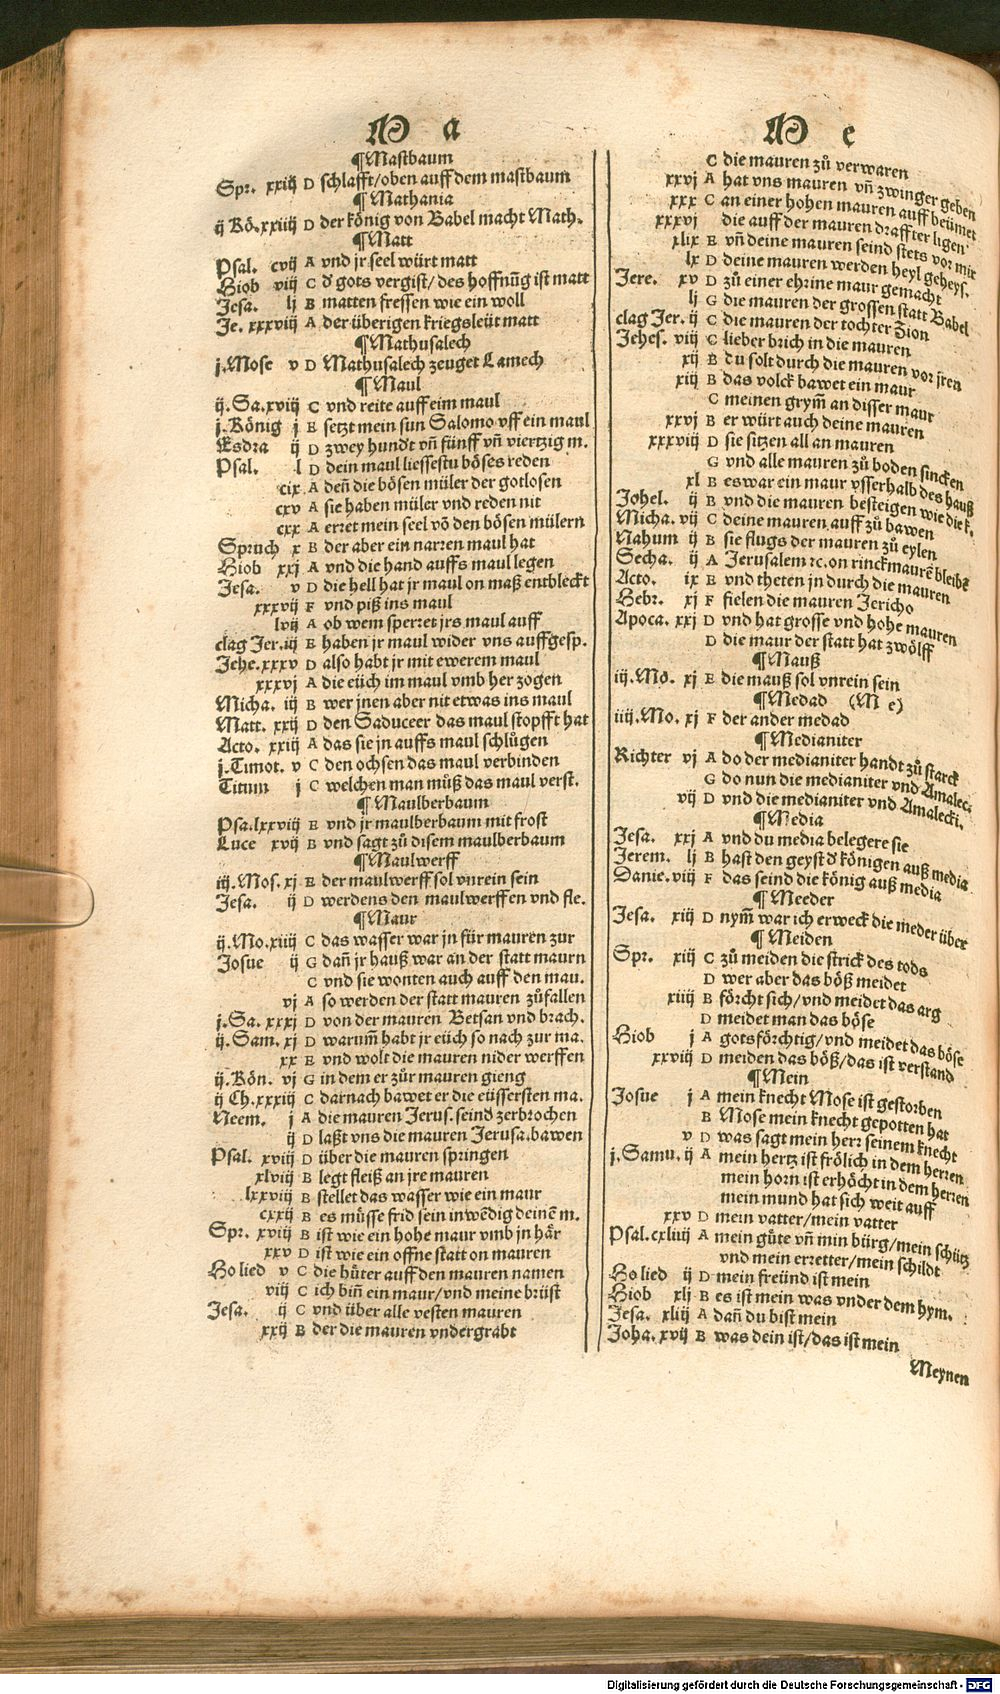 M a
¶Mastbaum
Spr. xxiij D schlafft/oben auff dem mastbaum
¶Mathania
ij Kö.xxiiij D der könig von Babel macht Math.
¶Matt
Psal. cvij A vnd jr seel würt matt
Hiob viij C d' gots vergist/des hoffnūg ist matt
Jesa. lj B matten fressen wie ein woll
Je. xxxviij A der überigen kriegsleüt matt
¶Mathusalech
j.Mose v D Mathusalech zeuget Lamech
¶Maul
ij.Sa.xviij C vnd reite auff eim maul
j.König j E setzt mein sun Salomo vff ein maul
Esdra ij D zwey hundt vñ fünff vñ viertzig m.
Psal. l D dein maul liessestu böses reden
cix A deñ die bösen müler der gotlosen
cxv A sie haben müler vnd reden nit
cxx A erret mein seel vō den bösen mülern
Spruch x B der aber ein narren maul hat
Hiob xxj A vnd die hand auffs maul legen
Jesa. v D die hell hat jr maul on maß entbleckt
xxxvij F vnd piß ins maul
lvij A ob wem sperret jrs maul auff
clag Jer.iij E haben jr maul wider vns auffgesp.
Jehe.xxxv D also habt jr mit ewerem maul
xxxvj A die eüch im maul vmb her zogen
Micha. iij B wer jnen aber nit etwas ins maul
Matt. xxij D den Saduceer das maul stopfft hat
Acto. xxiij A das sie jn auffs maul schlůgen
j.Timot. v C den ochsen das maul verbinden
Titum j C welchen man můß das maul verst.
¶Maulberbaum
Psa.lxxviij E vnd jr maulberbaum mit frost
Luce xvij B vnd sagt zů disem maulberbaum
¶Maulwerff
iij.Mos.xj E der maulwerff sol vnrein sein
Jesa. ij D werdens den maulwerffen vnd fle.
¶Maur
ij.Mo.xiiij C das wasser war jn für mauren zur
Josue ij G dañ jr hauß war an der statt maurn
C vnd sie wonten auch auff den mau.
vj A so werden der statt mauren zůfallen
j.Sa. xxxj D von der mauren Betsan vnd brach.
ij.Sam. xj D warum̄ habt jr eüch so nach zur ma.
xx E vnd wolt die mauren nider werffen
ij.Kön. vj G in dem er zůr mauren gieng
ij Ch.xxxiij C darnach bawet er die eüssersten ma.
Neem. j A die mauren Jerus.seind zerbrochen
ij D laßt vns die mauren Jerusa.bawen
Psal. xviij D über die mauren springen
xlviij B legt fleiß an jre mauren
lxxviij B stellet das wasser wie ein maur
cxxij B es müsse frid sein inwēdig deinē m.
Spr. xviij B ist wie ein hohe maur vmb jn här
xxv D ist wie ein offne statt on mauren
Ho lied v C die hůter auff den mauren namen
viij C ich biñ ein maur/vnd meine brüst
Jesa. ij C vnd über alle vesten mauren
xxij B der die mauren vndergrabt
M e
C die mauren zů verwaren
xxvj A hat vns mauren vñ zwinger geben
xxx C an einer hohen mauren auff beümet
xxxvj die auff der mauren draffter ligen
xlix E vñ deine mauren seind stets vor mir
lx D deine mauren werden heyl geheys.
Jere. xv D zů einer ehrine maur gemacht
lj G die mauren der grossen statt Babel
clag Jer.ij C die mauren der tochter Zion
Jehes. viij C lieber brich in die mauren
xij B du solt durch die mauren vor jren
xiij B das volck bawet ein maur
C meinen grym̄ an disser maur
xxvj B er würt auch deine mauren
xxxviij D sie sitzen all an mauren
G vnd alle mauren zů boden sincken
xl B es war ein maur vsserhalb des hauß
Johel. ij B vnd die mauren besteigen wie die k.
Micha. vij C deine mauren auff zů bawen
Nahum ij B sie flugs der mauren zů eylen
Secha. ij A Jerusalem ꝛc.on rinckmaurē bleibt
Acto. ix E vnd theten jn durch die mauren
Hebr. xj F fielen die mauren Jericho
Apoca. xxj D vnd hat grosse vnd hohe mauren
D die maur der statt hat zwölff
¶Mauß
iij.Mo. xj E die mauß sol vnrein sein
¶Medad (M e)
iiij.Mo. xj F der ander medad
¶Medianiter
Richter vj A do der medianiter handt zů starck
G do nun die medianiter vnd Amalec.
vij D vnd die medianiter vnd Amalecki.
¶Media
Jesa. xxj A vnd du media belegere sie
Jerem. lj B hast den geyst d' königen auß media
Danie. viij F das seind die könig auß media
¶Meeder
Jesa. xiij D nym̄ war ich erweck die meder über
¶Meiden
Spr. xiij C zů meiden die strick des tods
D wer aber das böß meidet
xiiij B förcht sich/vnd meidet das arg
D meidet man das böse
Hiob j A gotsförchtig/vnd meidet das böse
xxviij D meiden das böß/das ist verstand
¶Mein
Josue j A mein knecht Mose ist gestorben
B Mose mein knecht gepotten hat
v D was sagt mein herr seinem knecht
j.Samu. ij A mein hertz ist frölich in dem herren
mein horn ist erhöcht in dem herren
mein mund hat sich weit auff
xxv D mein vatter/mein vatter
Psal.cxliiij A mein gůte vñ min bürg/mein schütz
vnd mein erretter/mein schildt
Ho lied ij D mein freünd ist mein
Hiob xlj B es ist mein was vnder dem hym.
Jesa. xliij A dañ du bist mein
Joha. xvij B was dein ist/das ist mein
Meynen
Digitalisierung gefördert durch die Deutsche Forschungsgemeinschaft - DFG